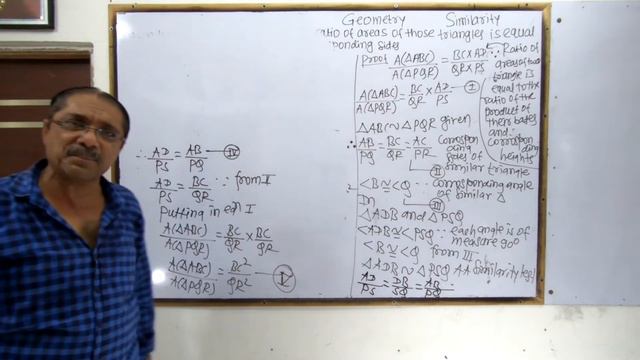 Geometry Similarity
ratio of areas of those triangles is equal
ponding sides
Proof A(△ABC)/A(△PQR) = BC×AD/QR×PS
∵ Ratio of
areas of two
triangle is
equal to the
ratio of the
product of
their bases
and
correspon
ding
heights
A(△ABC)/A(△PQR) = BC/QR × AD/PS — I
△ABC ~ △PQR given
∴ AB/PQ = BC/QR = AC/PR
correspon
ding
sides of
similar triangle
II
<B ≅ <Q ∵ corresponding angle
of similar △
III
In
△ADB and △PSQ
<ADB ≅ <PSQ ∵ each angle is of
measure 90°
<B ≅ <Q from III
△ADB ~ △PSQ AA Similarity
AD/PS = DB/SQ = AB/PQ
∴ AD/PS = AB/PQ — IV
AD/PS = BC/QR ∵ from II
Putting in eqn I
A(△ABC)/A(△PQR) = BC/QR × BC/QR
A(△ABC)/A(△PQR) = BC²/QR² — V